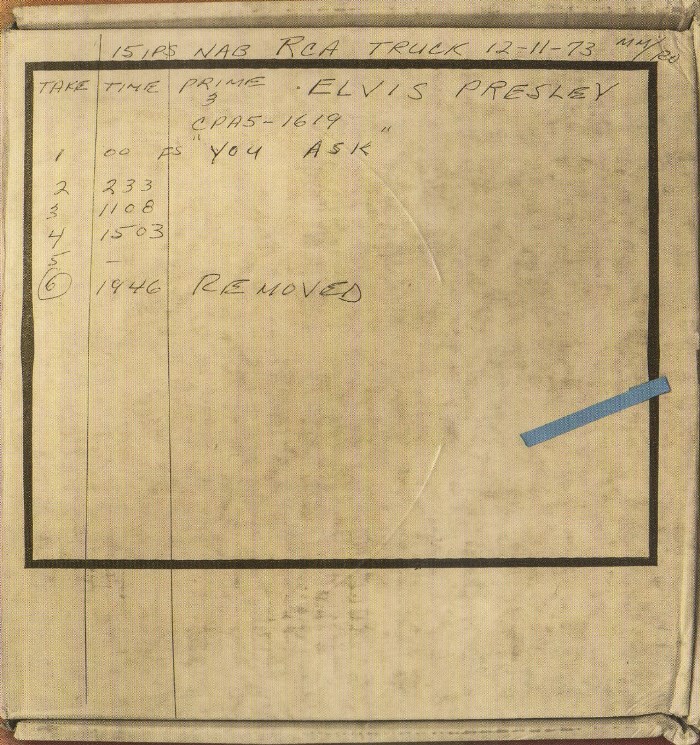 15 IPS NAB RCA TRUCK 12-11-73 MM/RO
TAKE TIME PRIME · ELVIS PRESLEY
3
CPA5-1619
1 00 FS "YOU ASK"
2 233
3 1108
4 1503
5 –
6 1946 REMOVED